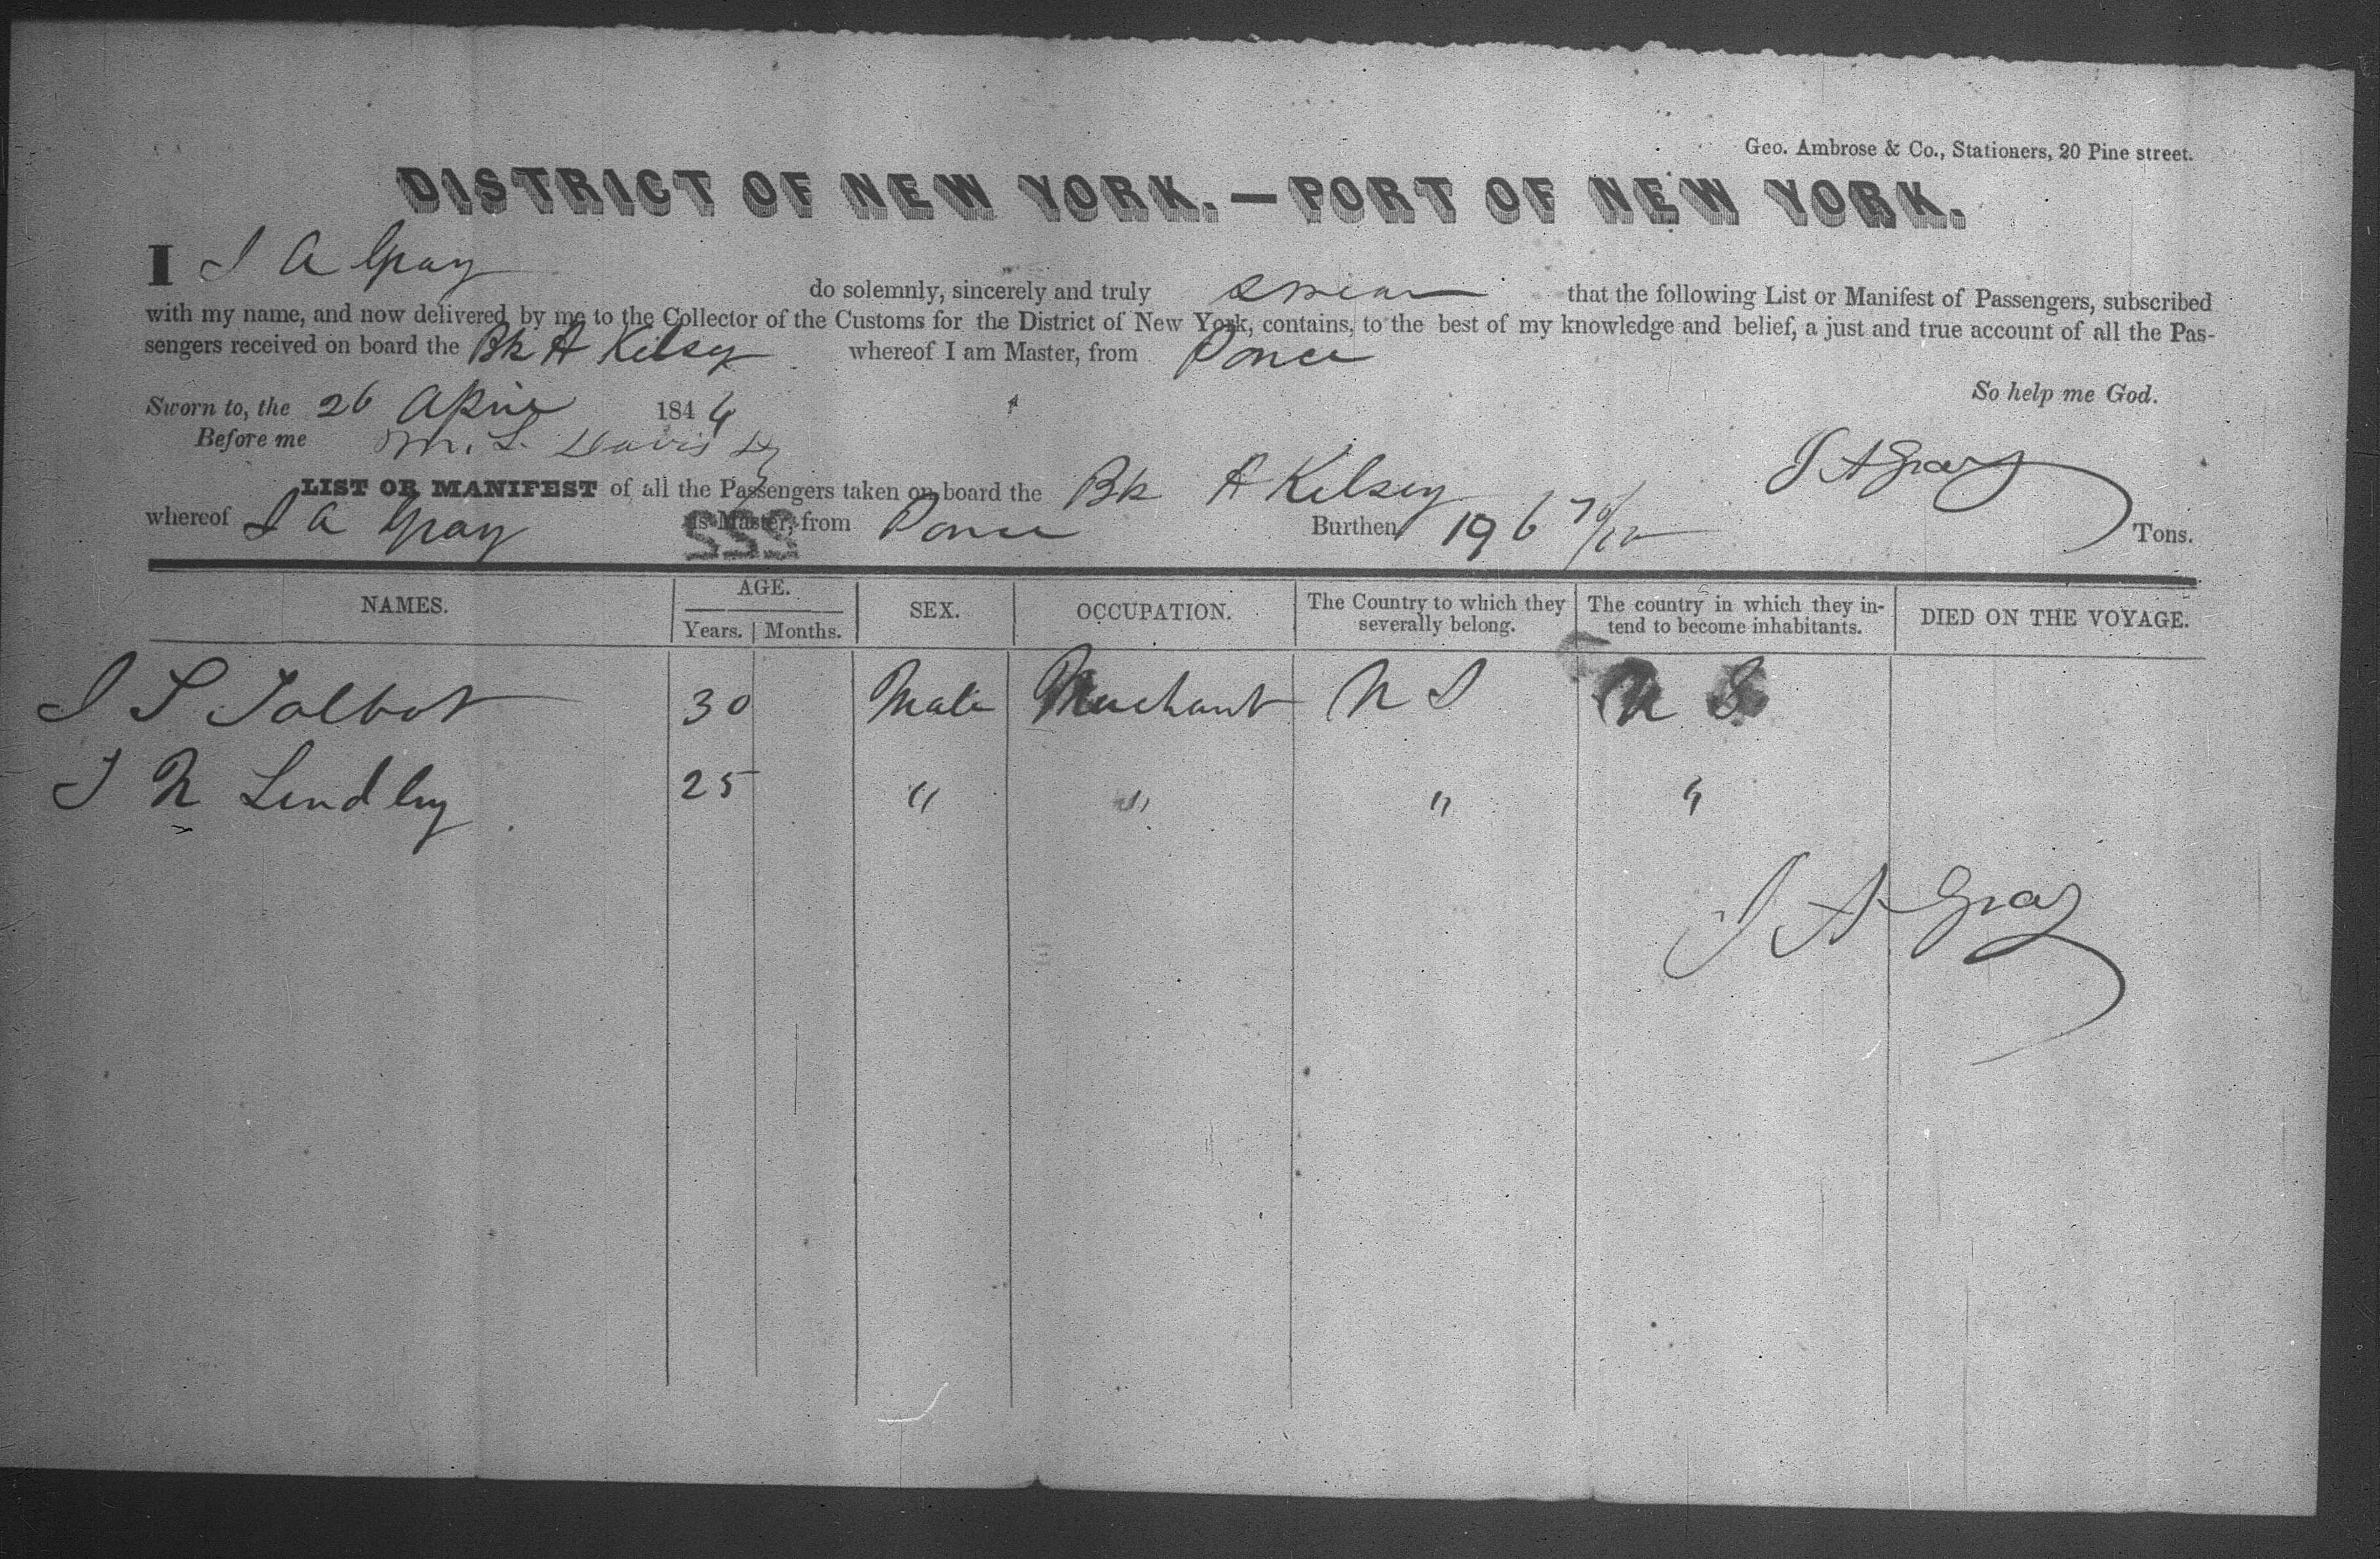 Geo. Ambrose & Co., Stationers, 20 Pine street.
DISTRICT OF NEW YORK.—PORT OF NEW YORK.
I J A Gray do solemnly, sincerely and truly swear that the following List or Manifest of Passengers, subscribed
with my name, and now delivered by me to the Collector of the Customs for the District of New York, contains, to the best of my knowledge and belief, a just and true account of all the Pas-
sengers received on board the Bk A Kelsey whereof I am Master, from Ponce
So help me God.
Sworn to, the 26 April 1846
Before me M. L. Davis
J A Gray
LIST OR MANIFEST of all the Passengers taken on board the Bk A Kelsey
whereof J A Gray is Master, from Ponce Burthen 196 Tons.
222
NAMES. AGE. SEX. OCCUPATION. The Country to which they severally belong. The country in which they in-tend to become inhabitants. DIED ON THE VOYAGE.
Years. Months.
J S Talbot 30 Male Merchant U S U S
J N Lindley 25 " " " "
J A Gray